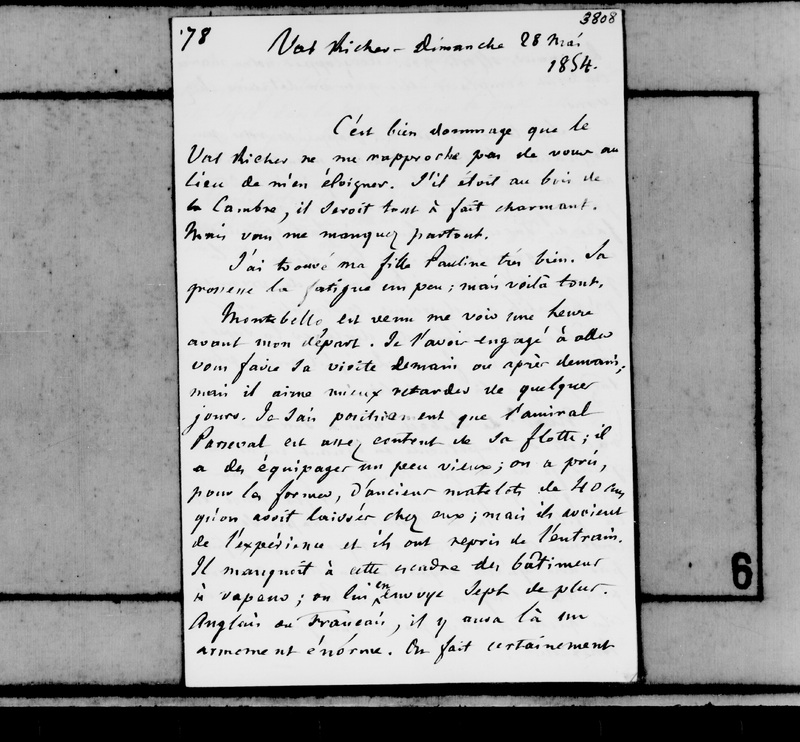 3808
'78
Val Richer - Dimanche 28 Mai
1854.
C'est bien dommage que le
Val Richer ne me rapproche pas de vous au
lieu de m'en éloigner. S'il étoit au bois de
la Cambre, il seroit tout à fait charmant.
Mais vous me manquez partout.
J'ai trouvé ma fille Pauline très bien. Sa
grossesse la fatigue un peu ; mais voilà tout.
Montebello est venu me voir une heure
avant mon départ. Je l'avois engagé à aller
vous faire sa visite demain ou après demain ;
mais il aime mieux retarder de quelques
jours. Je sais positivement que l'amiral
Parseval est assez content de sa flotte ; il
a des équipages un peu vieux ; on a pris,
pour les former, d'anciens matelots de 40 ans
qu'on avoit laissés chez eux ; mais ils avoient
de l'expérience et ils ont repris de l'entrain.
Il manquoit à cette escadre des bâtimens
à vapeur ; on lui en envoye sept de plus.
Anglais ou Français, il y aura là un
armement énorme. On fait certainement
6